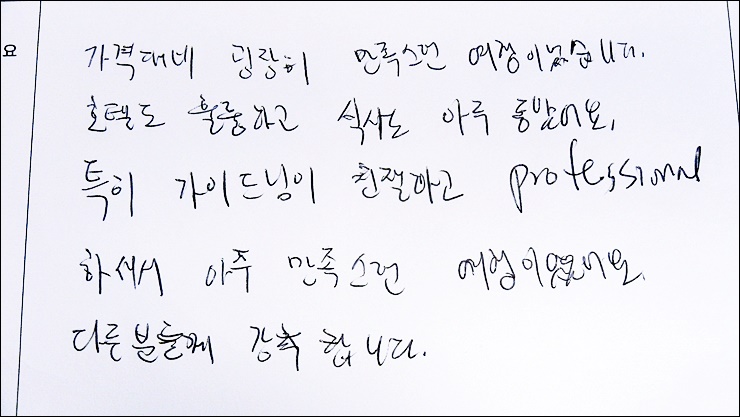 요
가격대비 굉장히 만족스런 여정이었습니다.
호텔도 훌륭하고 식사도 아주 좋았어요.
특히 가이드님이 친절하고 professional
하셔서 아주 만족스런 여정이였어요.
다른분들께 강추 합니다.